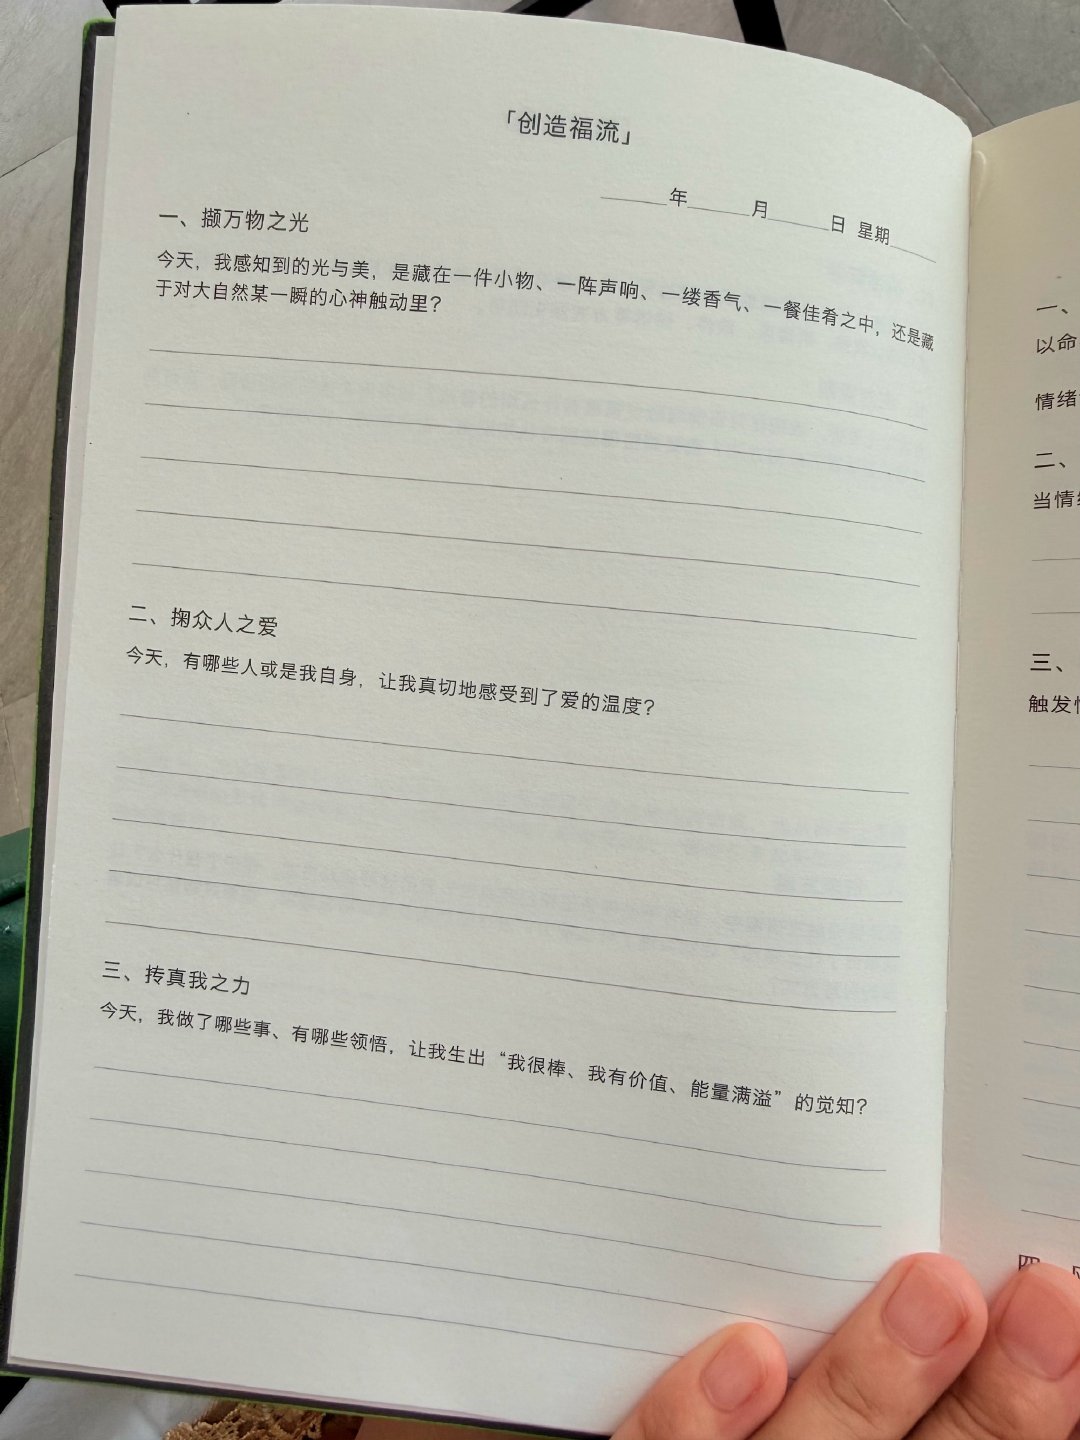 「创造福流」
年 月 日 星期
一、撷万物之光
今天，我感知到的光与美，是藏在一件小物、一阵声响、一缕香气、一餐佳肴之中，还是藏
于对大自然某一瞬的心神触动里？
二、掬众人之爱
今天，有哪些人或是我自身，让我真切地感受到了爱的温度？
三、抟真我之力
今天，我做了哪些事、有哪些领悟，让我生出“我很棒、我有价值、能量满溢”的觉知？
一、
以命
情绪
二、
当情
三、
触发
四